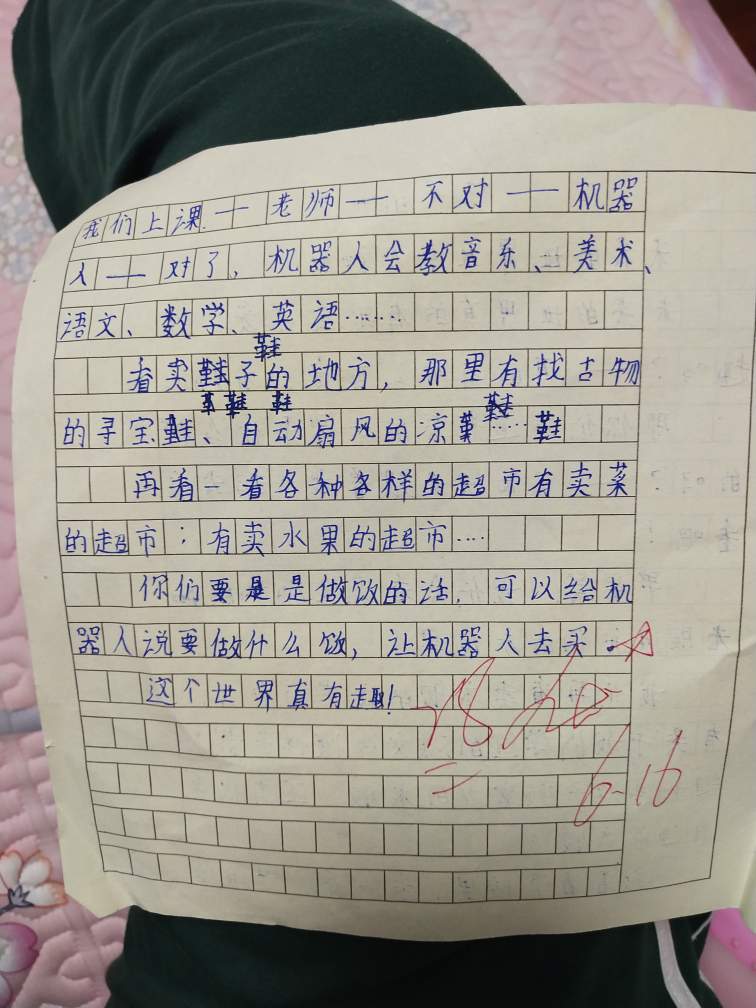 我们上课——老师——不对——机器
人——对了，机器人会教音乐、美术、
语文、数学、英语……
鞋
看卖鞋子的地方，那里有找古物
革鞋 鞋 鞋
的寻宝鞋、自动扇风的凉……鞋
再看一看各种各样的超市有卖菜
的超市；有卖水果的超市……
你们要是是做饭的话，可以给机
器人说要做什么饭，让机器人去买。
这个世界真有趣！
28
6-16